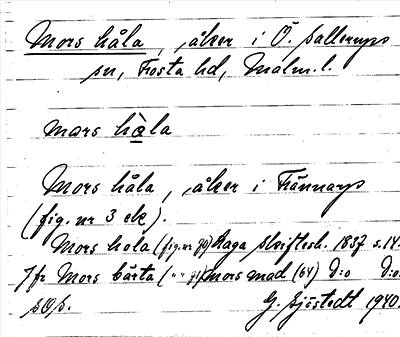 Mors håla, åker i Ö. Sallerups
sn, Frosta hd, Malm. l.
mars hɑ̀la
Mors håla, åker i Frännarp
(fig. nr 3 ek).
Mors hola (fig. nr 70) Laga skiftesh. 1837 s. 14.
Jfr Mors bårta ( " " 71) mors mad (64) D:o D:o
G. Sjöstedt 1940.